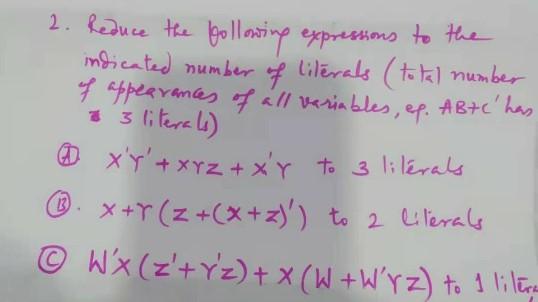 2. Reduce the following expressions to the
indicated number of literals (total number
of appearances of all variables, eg. AB+C' has
3 literals)
(A) X'Y' + XYZ + X'Y to 3 literals
(B). X+Y(Z+(X+Z)') to 2 literals
(C) W'X(Z'+Y'Z)+X(W+W'YZ) to 1 litera